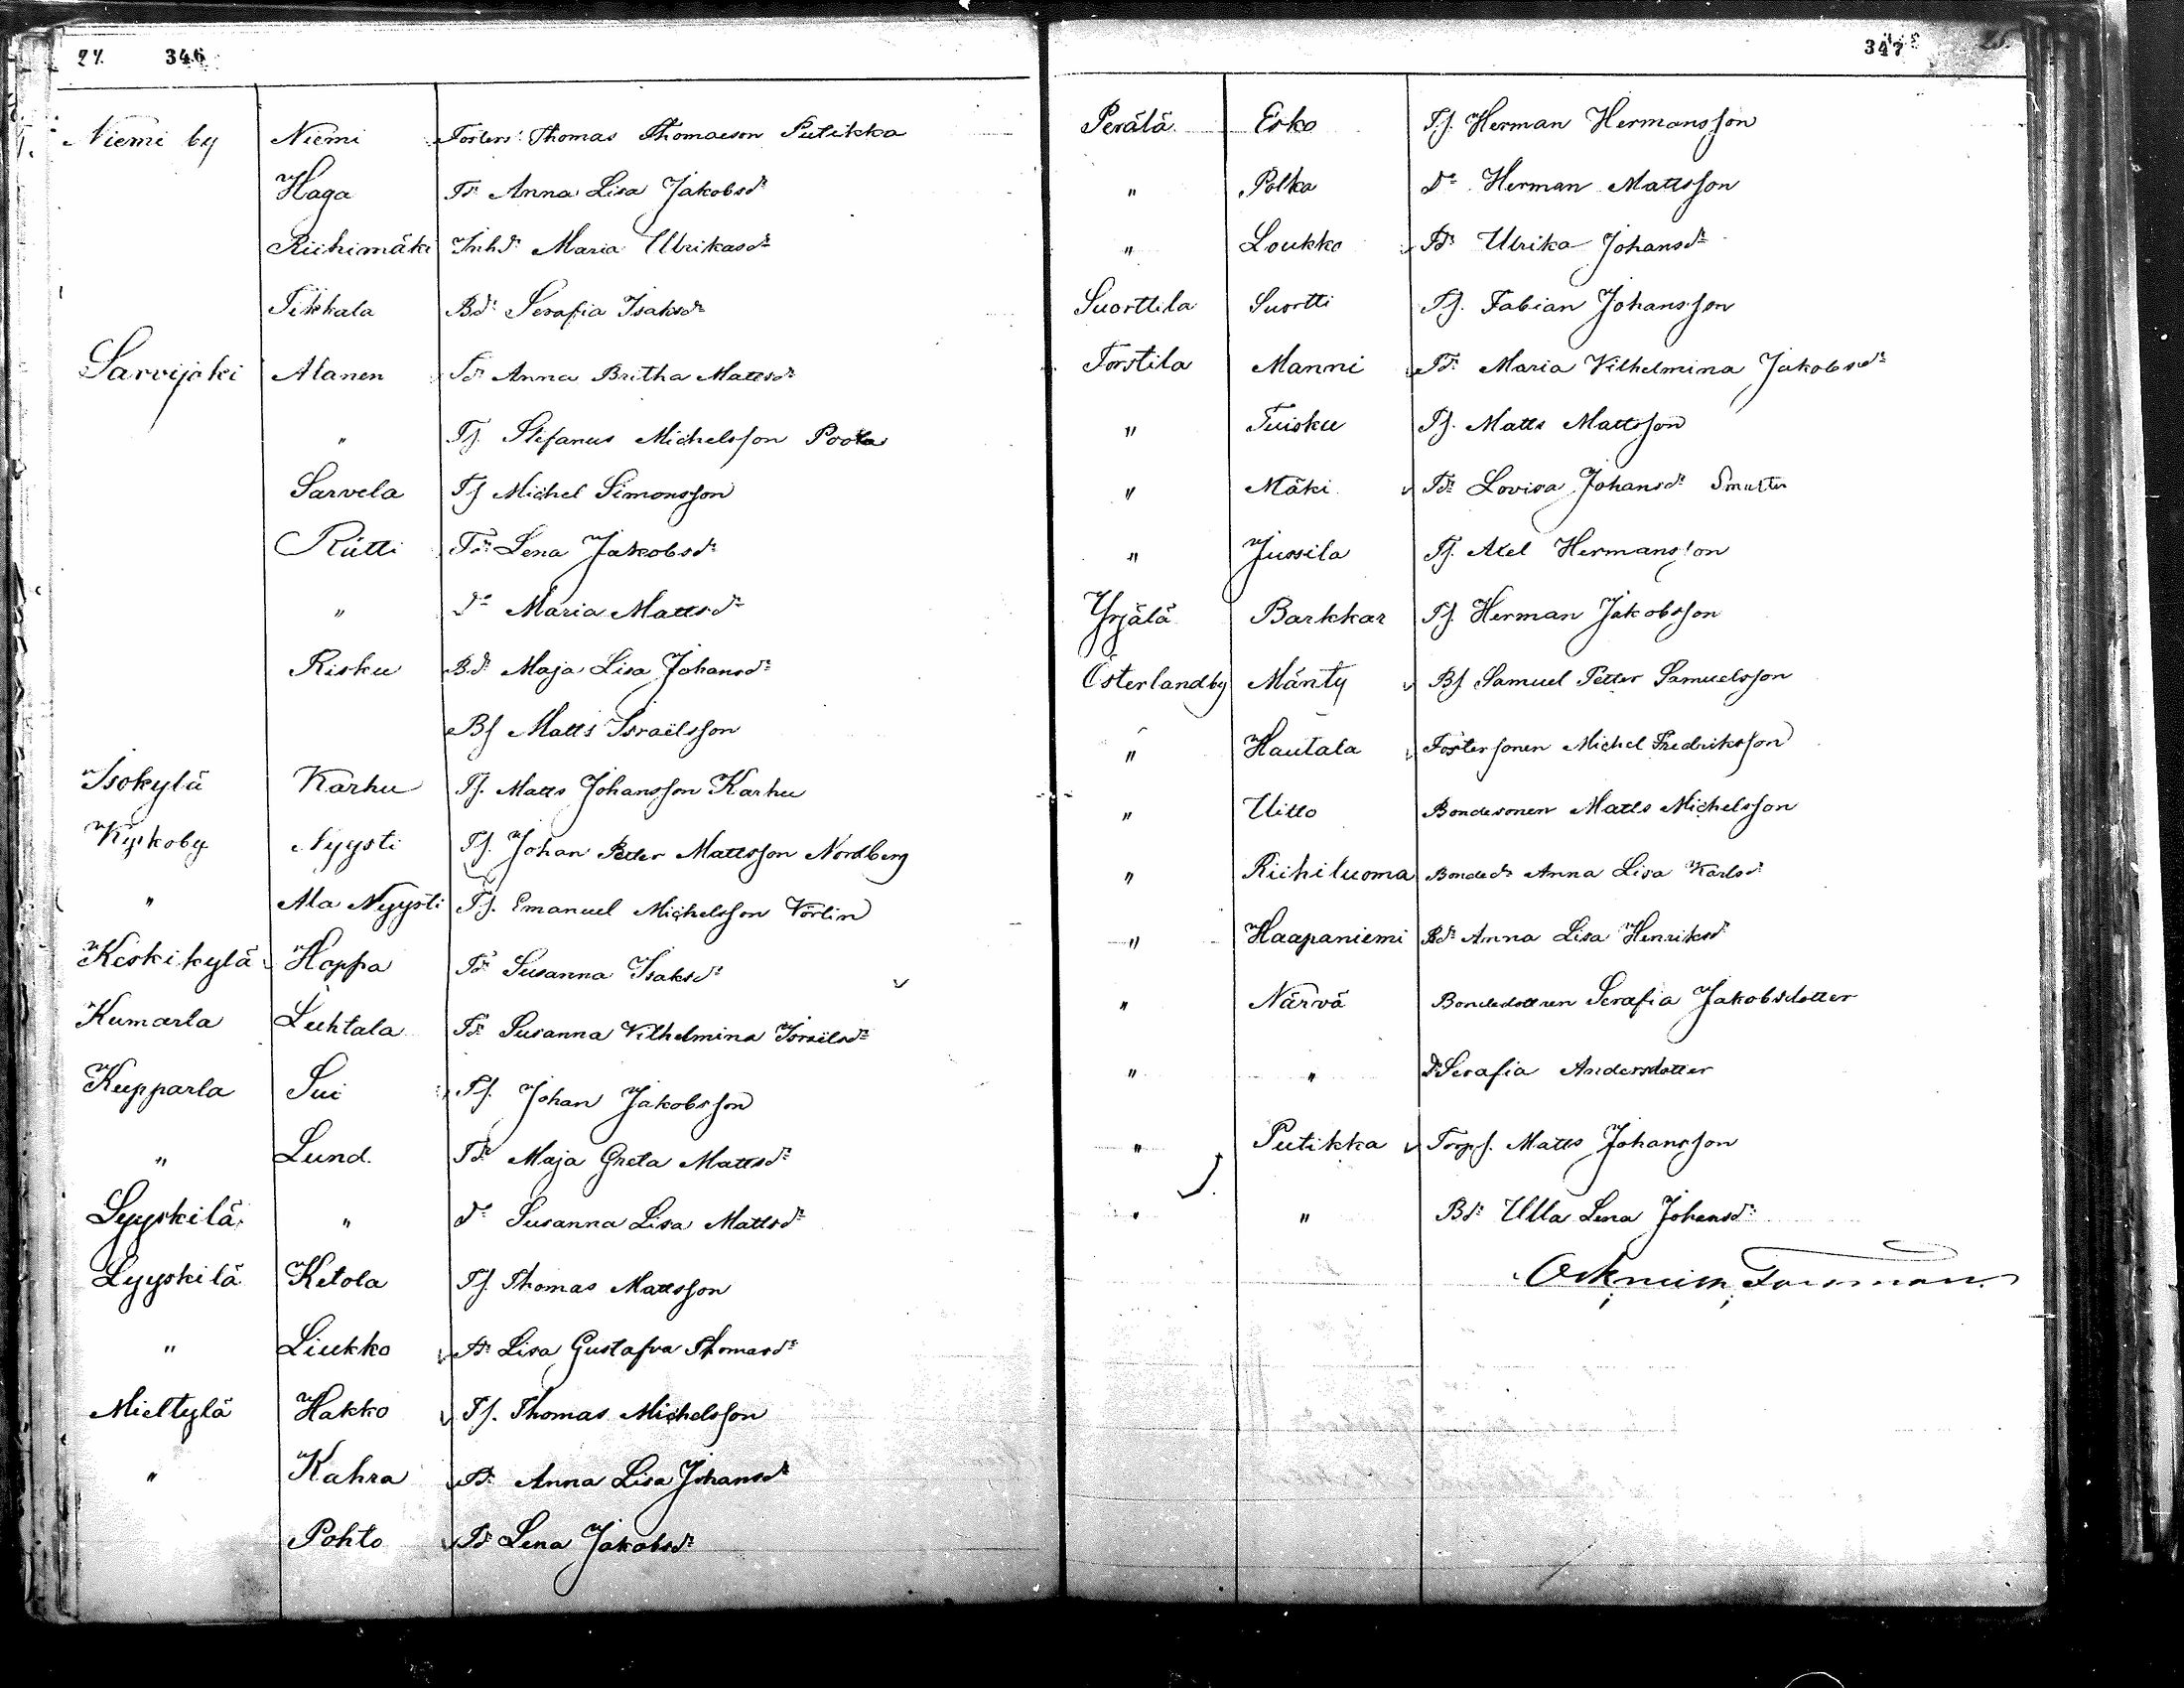 27. 346
Niemi by Niemi Fosters: Thomas Thomasson Putikka
Haga Td: Anna Lisa Jakobsdr
Riihimäki Inhdr Maria Ulrikasdr
Tikkala Bdr Serafia Isaksdr
Sarvijoki Alanen Tdr Anna Britha Mattsdr
" Ts. Stefanus Michelsson Poola
Sarvela Ts Michel Simonsson
Rütti Tdr Lena Jakobsdr
" Do Maria Mattsdr
Risku Bdr Maja Lisa Johansdr
Bs Matts Israëlsson
Isokylä Karhu Ts. Matts Johansson Karhu
Kyrkoby Nyysti Ts. Johan Petter Mattsson Nordberg
" Ala Nyysti Ts. Emanuel Michelsson Törlin
Keskikylä Hoppa Tdr Susanna Isaksdr
Kumarla Luhtala Tdr Susanna Vilhelmina Israëlsdr
Kupparla Sui Ts. Johan Jakobsson
" Lund. Tdr Maja Greta Mattsdr
Lyyskilä " Do Susanna Lisa Mattsdr
Lyyskilä Ketola Ts. Thomas Mattsson
" Liukko Tdr Lisa Gustafva Thomasdr
Miettylä Hakko Ts. Thomas Michelsson
" Kahra Tdr Anna Lisa Johansdr
Pohto Tdr Lena Jakobsdr
347
Perälä Erko Ts. Herman Hermansson
" Polka Do Herman Mattsson
" Loukko Tdr Ulrika Johansdr
Suorttila Suortti Ts. Fabian Johansson
Torstila Manni Tdr Maria Vilhelmina Jakobsdr
" Tuisku Ts. Matts Mattsson
" Mäki Tdr Lovisa Johansdr
" Jussila Ts. Axel Hermansson
Yrjälä Barkkar Ts. Herman Jakobsson
Österlandby Mänty Bs Samuel Petter Samuelsson
" Hautala Fostersonen Michel Fredriksson
" Uitto Bondesonen Matts Michelsson
" Riihiluoma Bondedr Anna Lisa Karlsdr
" Haapaniemi Bdr Anna Lisa Henriksdr
" Närvä Bondedottren Serafia Jakobsdotter
" " Do Serafia Andersdotter
" Putikka Torps. Matts Johansson
" " Bdr Ulla Lena Johansdr